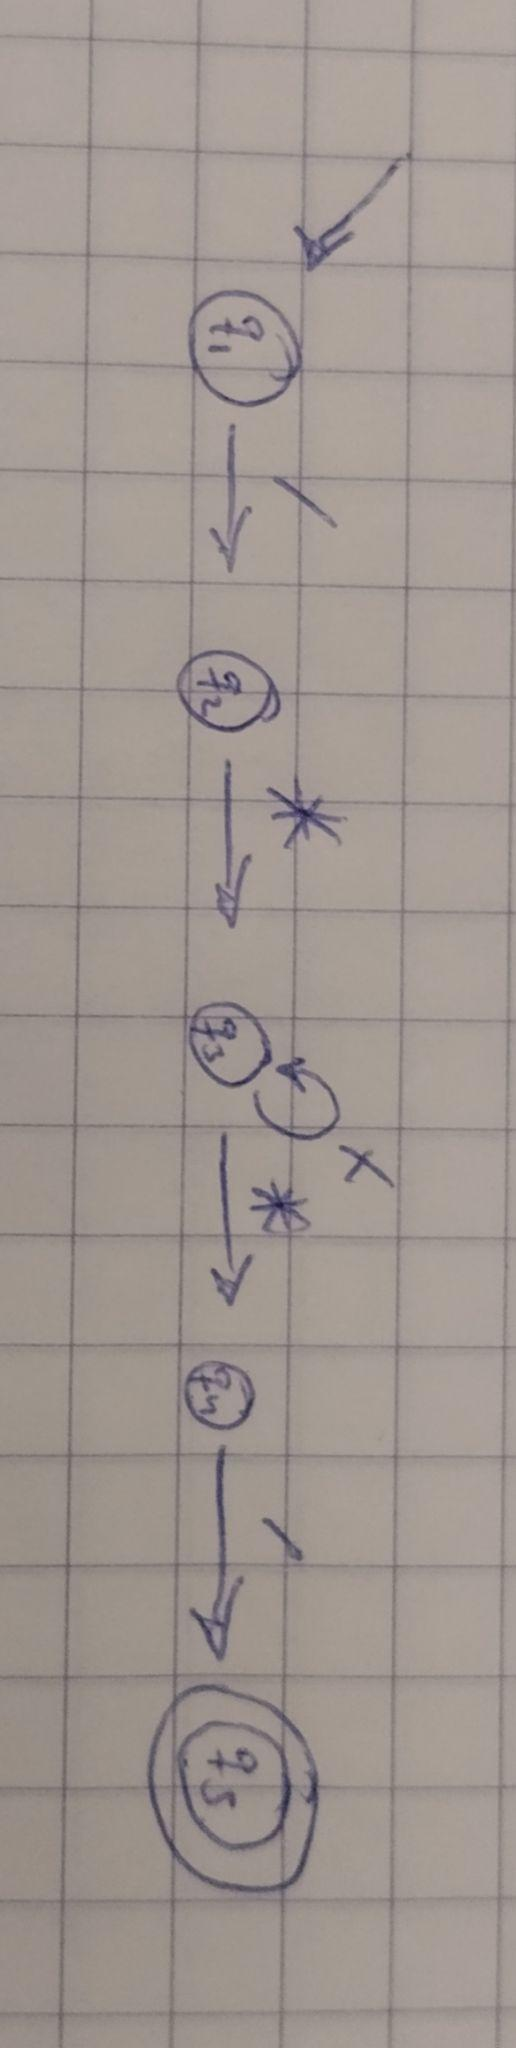 q1
/
q2
*
q3
x
*
q4
/
q5